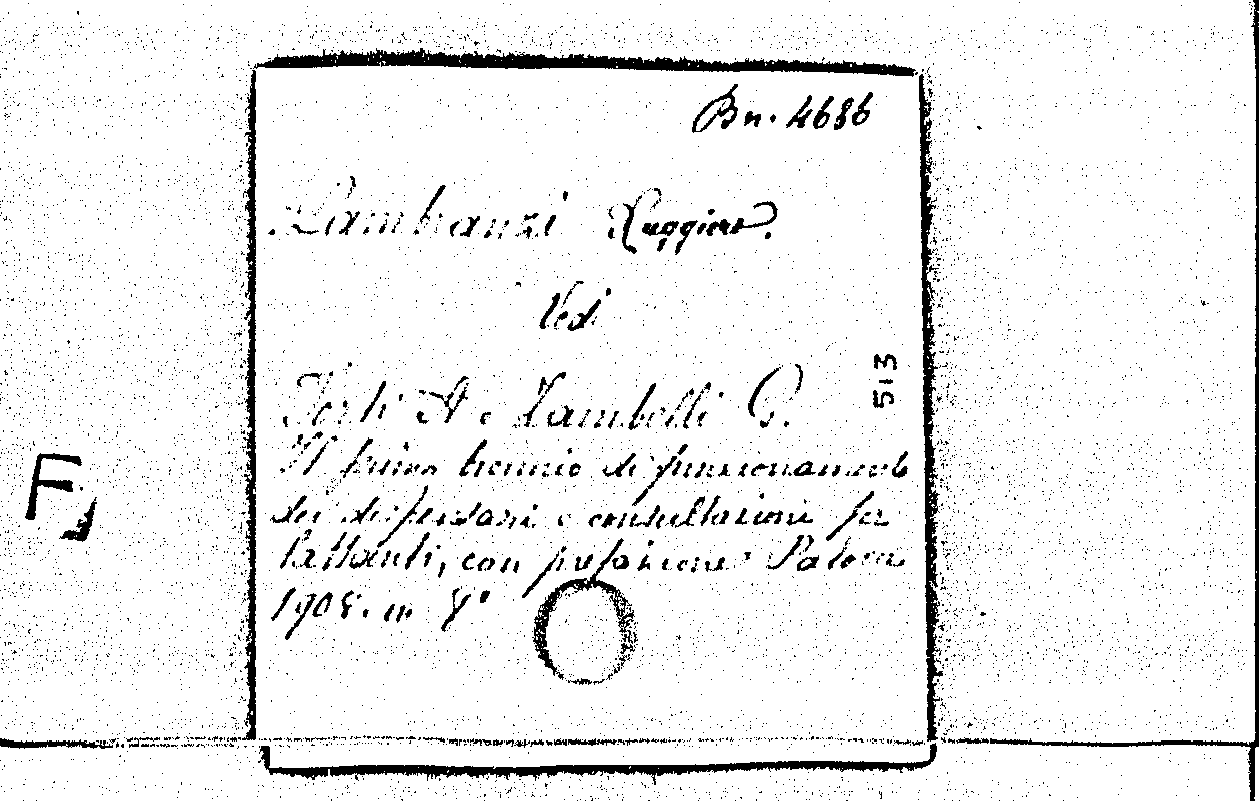 Bn. 4686
Lambranzi Ruggiero.
Vedi
Forti A. e Zambelli G.
Il primo triennio di funzionamento
dei dispensari e consultazioni per
lattanti, con prefazione Padova
1908. in 8°
513
F